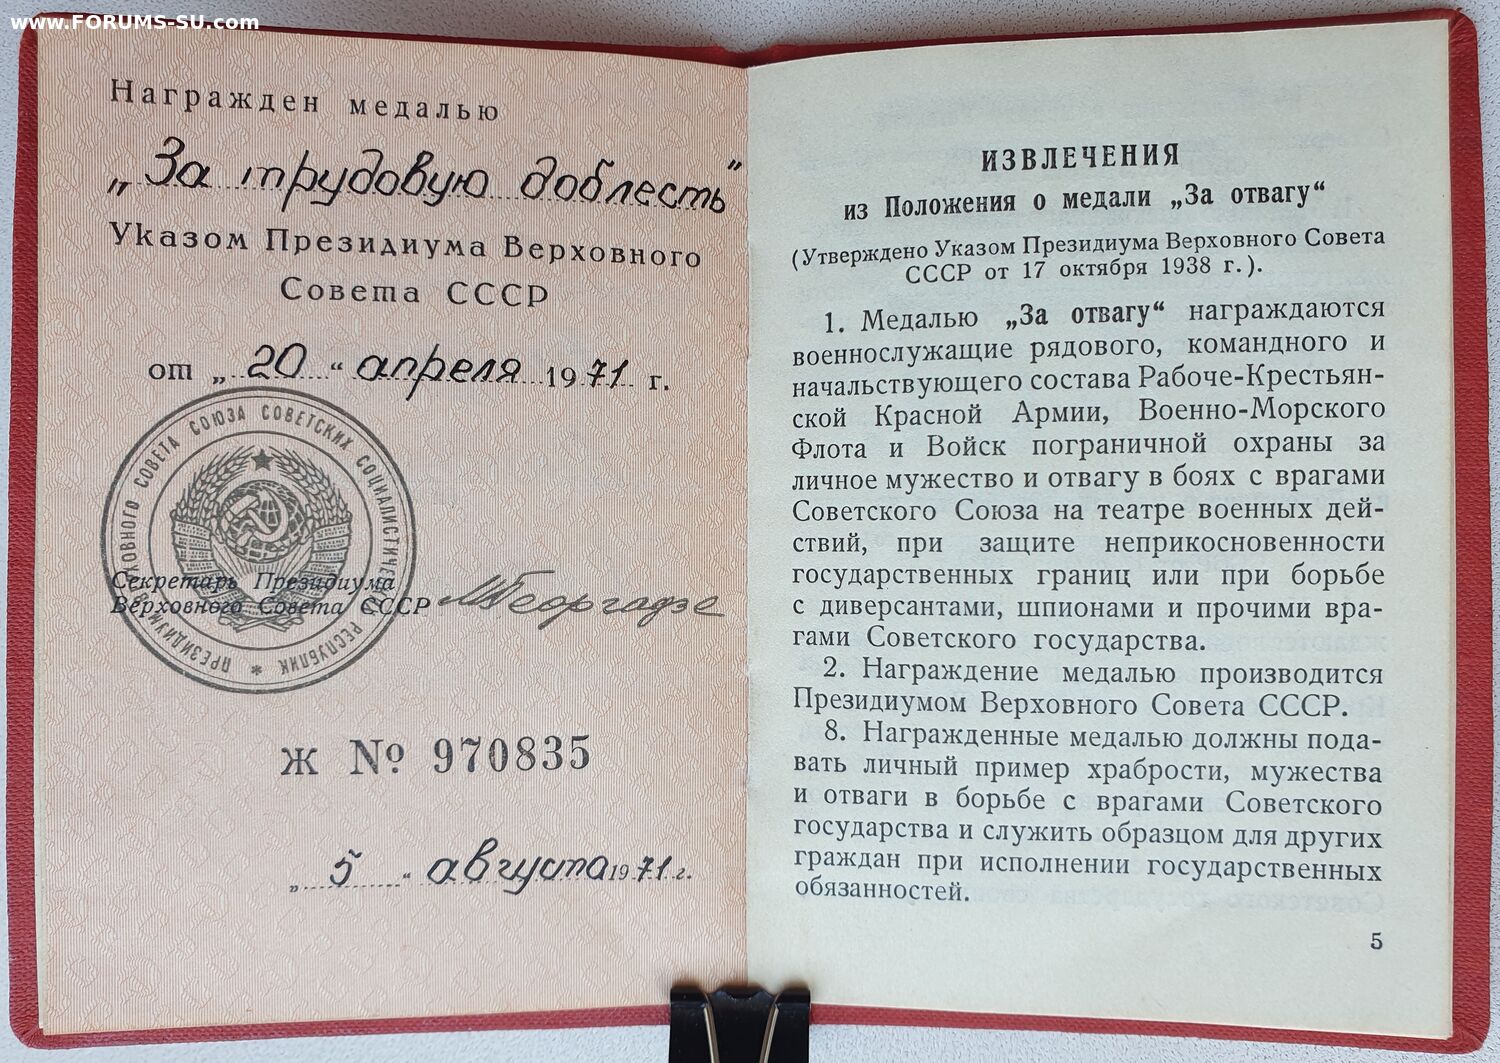 www.FORUMS-SU.com
Награжден медалью
„За трудовую доблесть"
Указом Президиума Верховного
Совета СССР
от „20“ апреля 1971 г.
ПРЕЗИДИУМ ВЕРХОВНОГО СОВЕТА СОЮЗА СОВЕТСКИХ СОЦИАЛИСТИЧЕСКИХ РЕСПУБЛИК *
Секретарь Президиума
Верховного Совета СССР МГеоргадзе
Ж № 970835
„5“ августа 1971 г.
ИЗВЛЕЧЕНИЯ
из Положения о медали „За отвагу“
(Утверждено Указом Президиума Верховного Совета
СССР от 17 октября 1938 г.).
1. Медалью „За отвагу“ награждаются
военнослужащие рядового, командного и
начальствующего состава Рабоче-Крестьян-
ской Красной Армии, Военно-Морского
Флота и Войск пограничной охраны за
личное мужество и отвагу в боях с врагами
Советского Союза на театре военных дей-
ствий, при защите неприкосновенности
государственных границ или при борьбе
с диверсантами, шпионами и прочими вра-
гами Советского государства.
2. Награждение медалью производится
Президиумом Верховного Совета СССР.
8. Награжденные медалью должны пода-
вать личный пример храбрости, мужества
и отваги в борьбе с врагами Советского
государства и служить образцом для других
граждан при исполнении государственных
обязанностей.
5